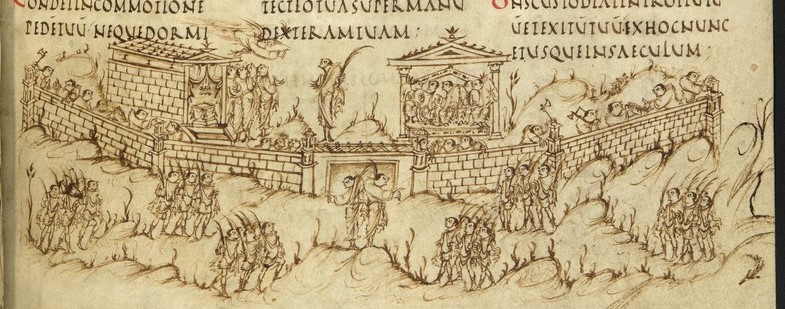 NONDETINCOMMOTIONE
PEDĒTUŪ·NEQUEDORMI
TECTIOTUASUPERMANŪ
DEXTERAMTUAM;
DNSCUSTODIATINTROITŪTU
ŪETEXITŪTUŪEXHOCNUNC
ETUSQUEINSAECULUM;